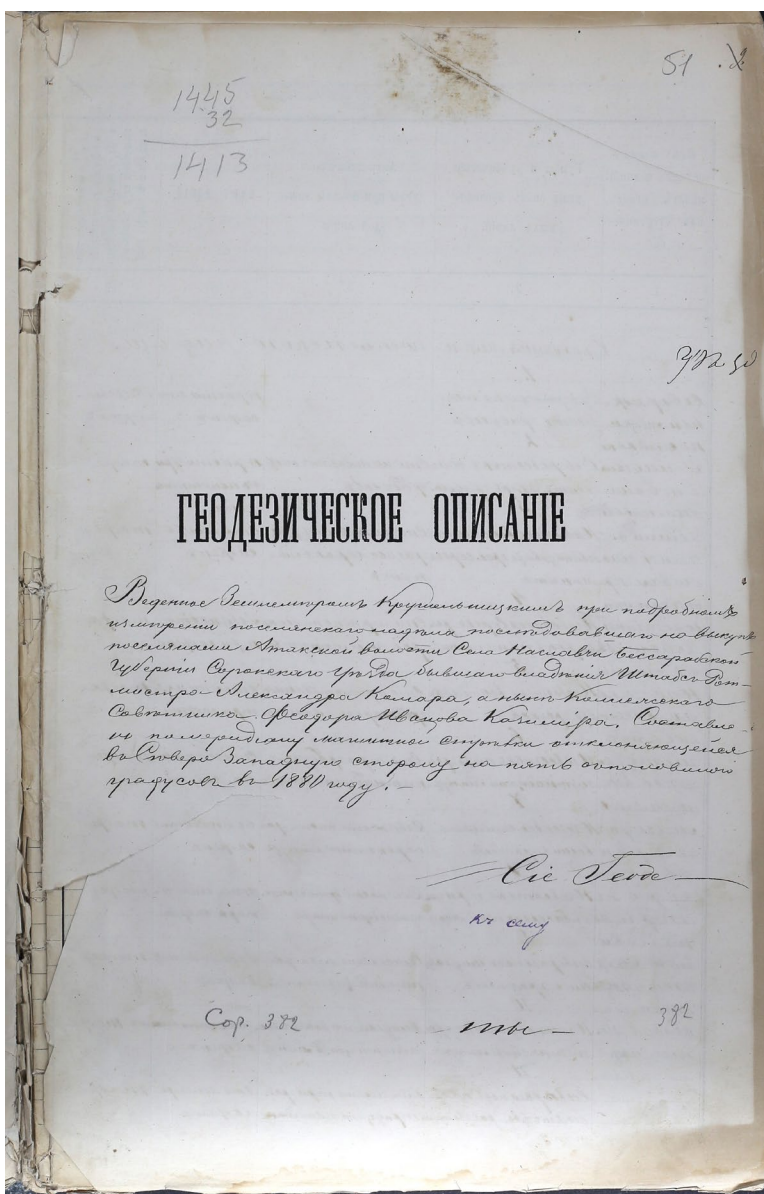 51
1445
32
1413
ГЕОДЕЗИЧЕСКОЕ ОПИСАНІЕ
Веденное Землемѣромъ Крушельницкимъ при подробномъ
измѣреніи поселянскаго надѣла послѣдовавшаго на выкупъ
поселянами Атакской волости Села Наславчи Бессарабской
Губерніи Сорокскаго уѣзда бывшаго владѣнія Штабсъ Рот-
мистра Александра Комара, а нынѣ Коллежскаго
Совѣтника Феодора Иванова Казимира. Составле-
но по меридіану магнитной стрѣлки отклоняющейся
въ Сѣверо Западную сторону на пять съ половиною
градусовъ въ 1880 году. –
Сіе Геоде
къ сему
Сор. 382
ты –
382